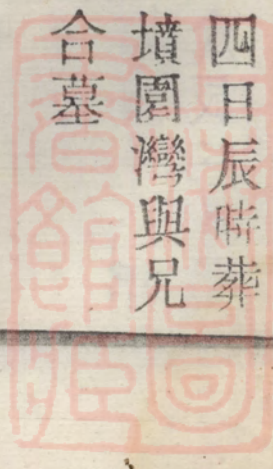 四日辰時葬
墳園灣與兄
合墓